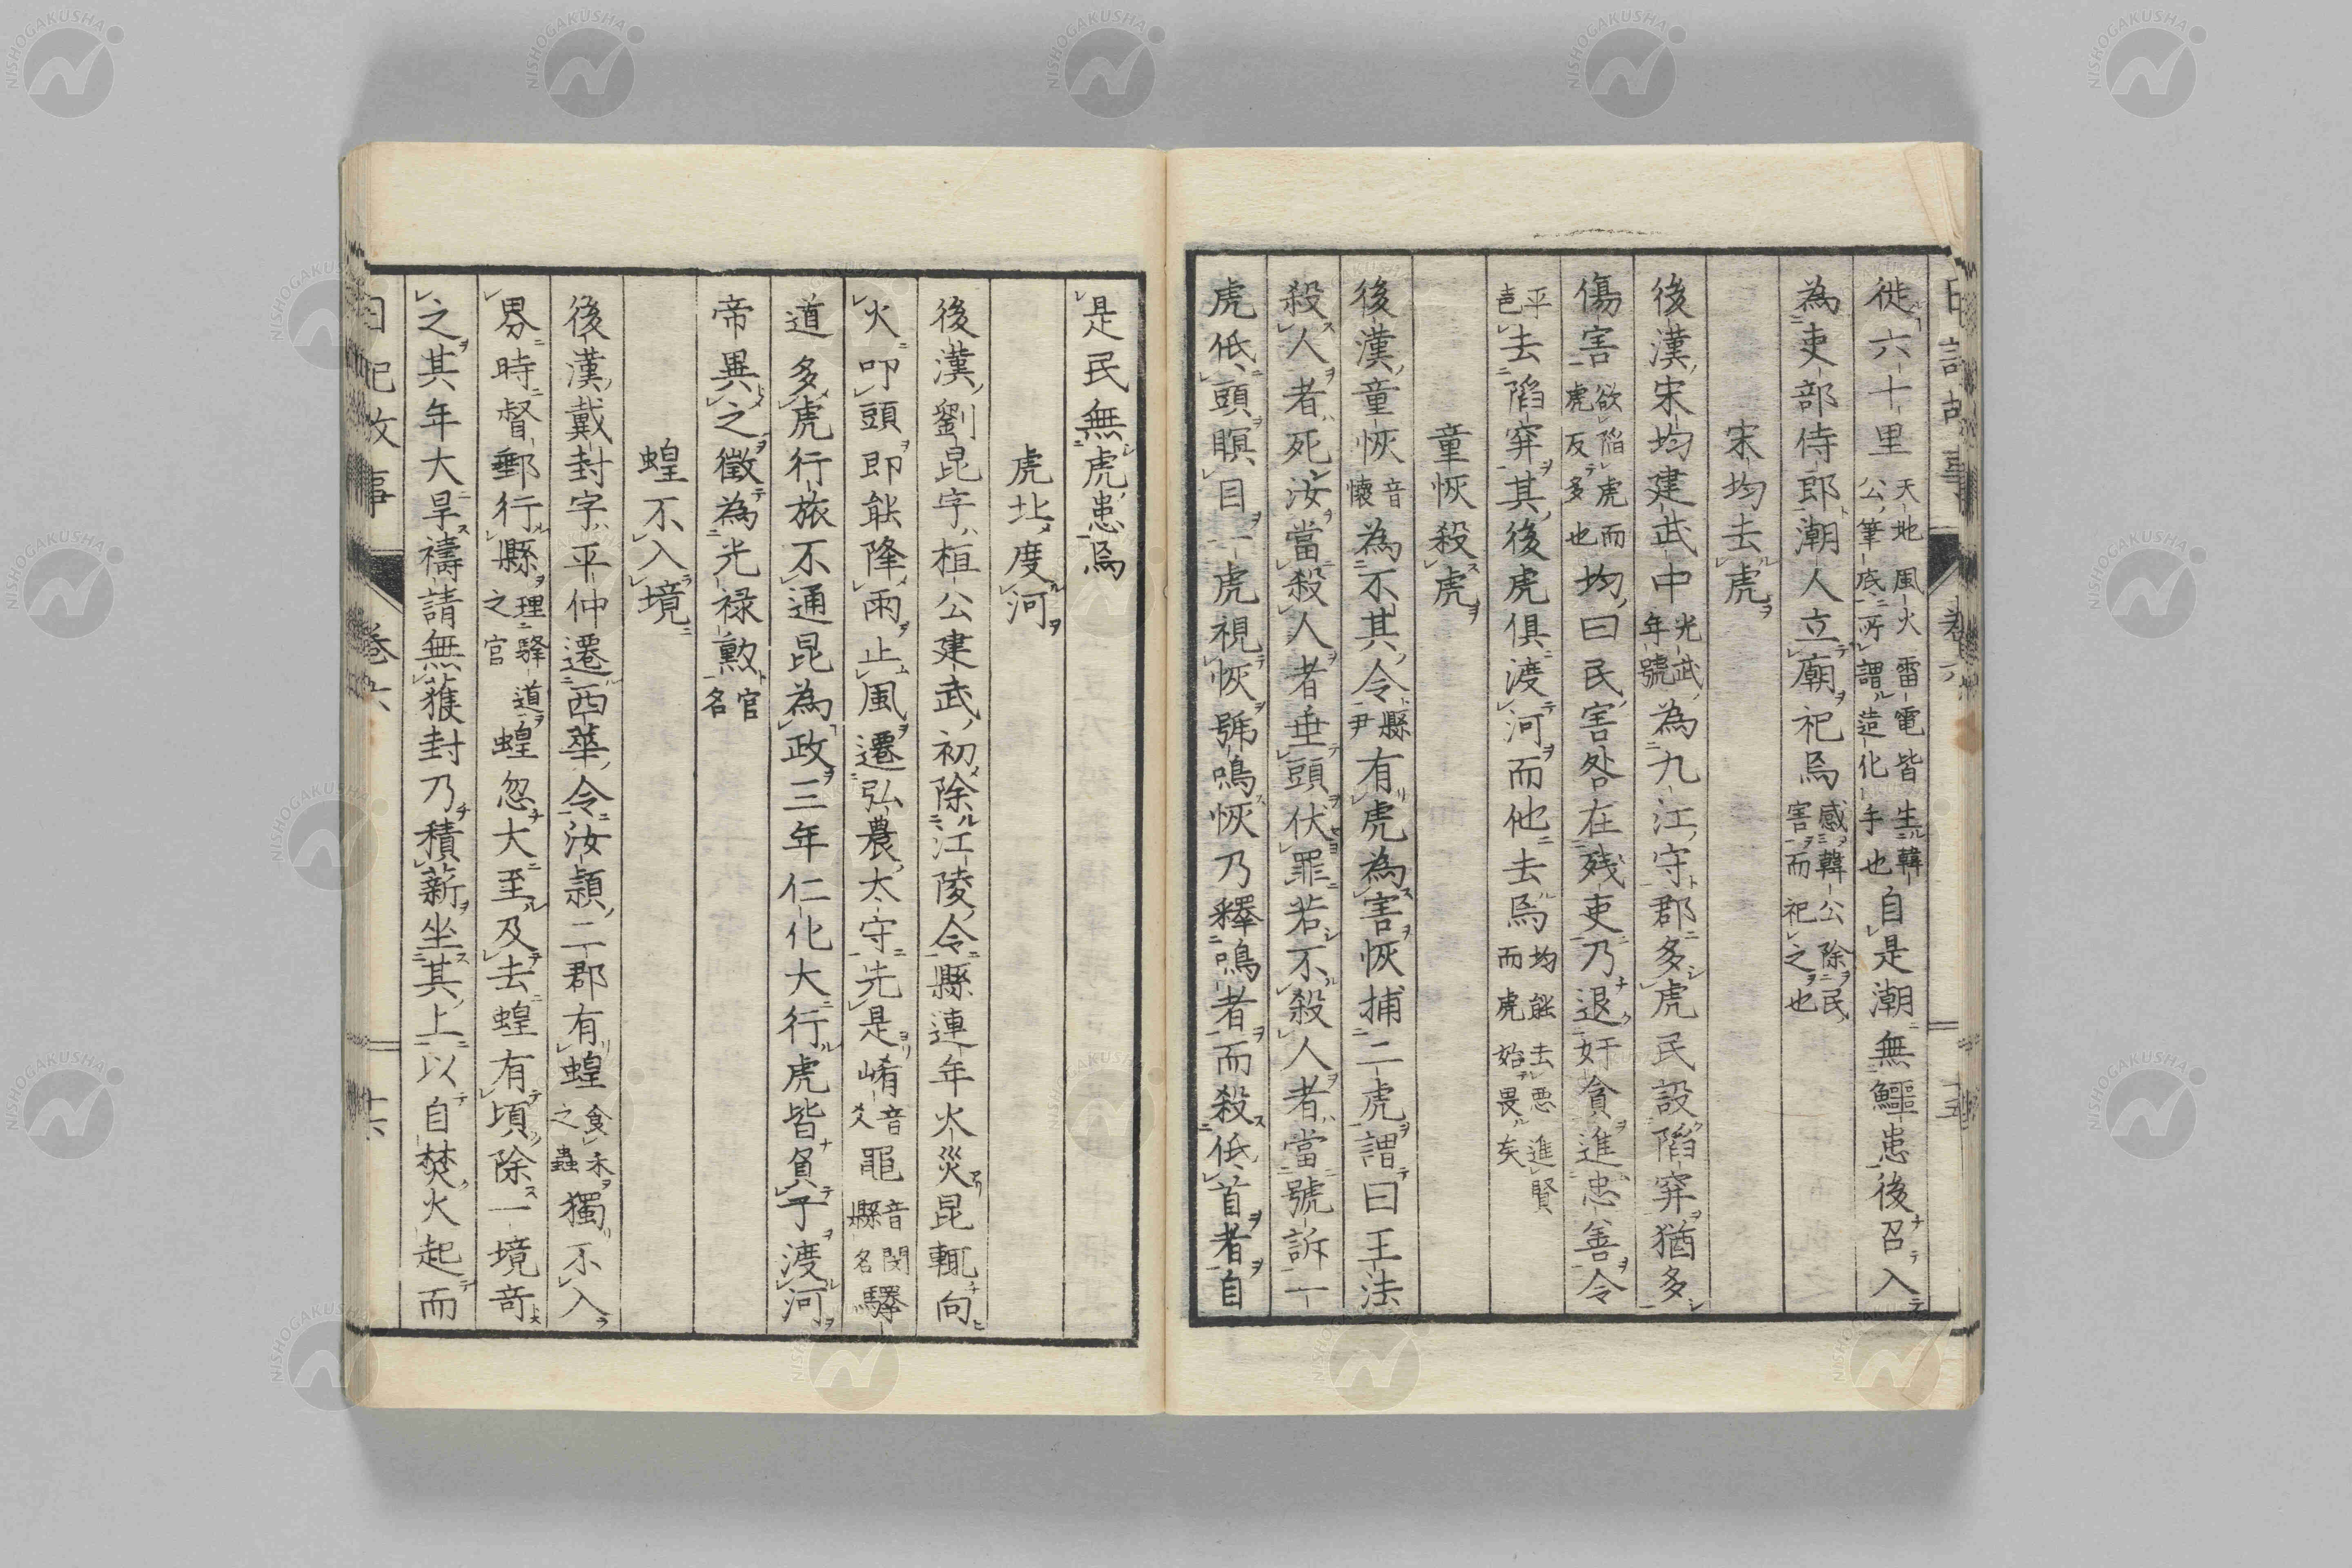 徙六十里天地風火雷電皆生韓公筆底所謂造化手也自是潮無鱷患後召入
為吏部侍郎潮人立廟祀焉感韓公除民害而祀之也
宋均去虎
後漢宋均建武中光武年號為九江守郡多虎民設陷穽猶多
傷害欲陷虎而虎反多也均曰民害咎在残吏乃退奸貪進忠善令
平邑去陷穽其後虎俱渡河而他去焉均能去悪進賢而虎始畏矣
童恢殺虎
後漢童恢音懷為不其令縣尹有虎為害恢捕二虎謂曰王法
殺人者死汝當殺人者垂頭伏罪若不殺人者當號訴一
虎低頭瞑目一虎視恢號鳴恢乃釋鳴者而殺低首者自
是民無虎患焉
虎北度河
後漢劉昆字桓公建武初除江陵令縣連年火災昆輒向
火叩頭即能降雨止風遷弘農太守先是崤音爻黽音閔縣名驛
道多虎行旅不通昆為政三年仁化大行虎皆負子渡河
帝異之徵為光禄勲官名
蝗不入境
後漢戴封字平仲遷西華令汝潁二郡有蝗食禾之蟲獨不入
界時督郵行縣理驛道之官蝗忽大至及去蝗有頃除一境奇
之其年大旱禱請無獲封乃積薪坐其上以自焚火起而
日記故事 巻六 十六